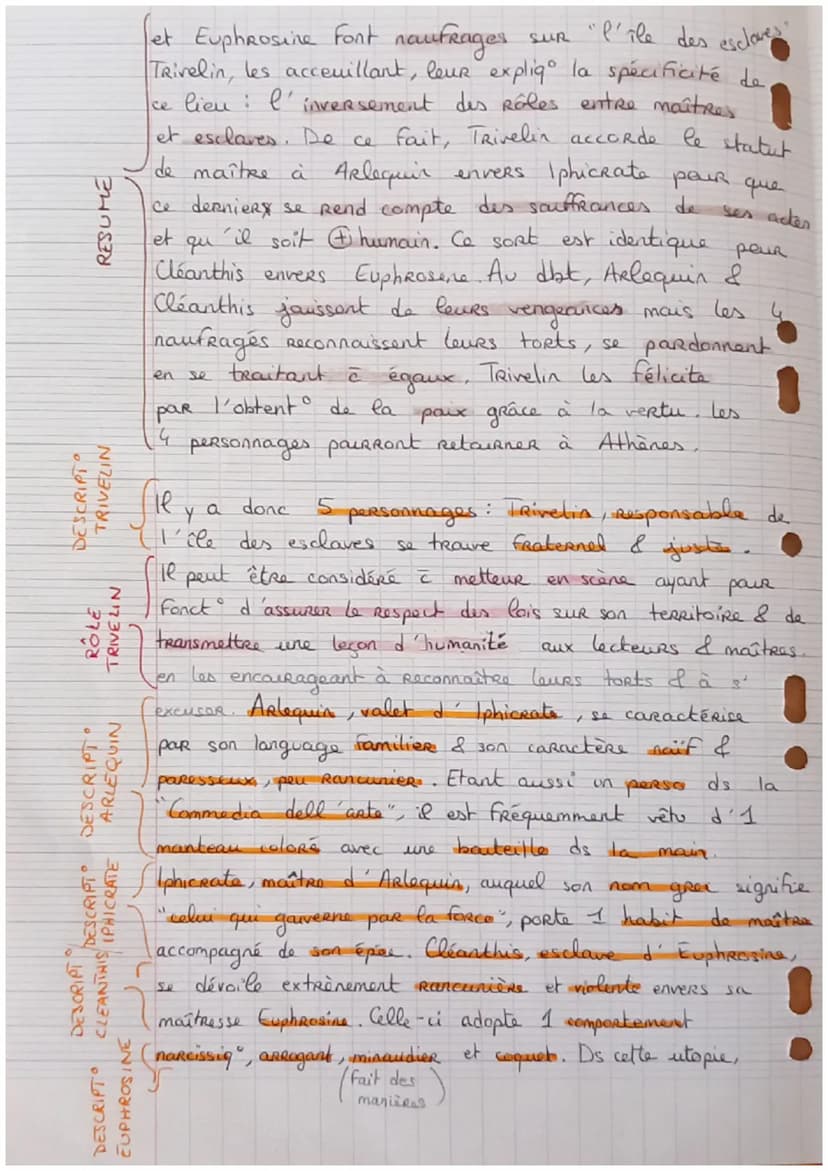 et Euphrosine font naufrages sur "l'île des esclaves"
Trivelin, les acceuillant, leur expliq° la spécificité de
ce lieu : l'inversement des rôles entre maîtres
et esclaves. De ce fait, Trivelin accorde le statut
de maître à Arlequin envers Iphicrate pour que
ce dernier se rend compte des souffrances de ses actes
et qu'il soit ⊕ humain. Ce sort est identique pour
Cléanthis envers Euphrosine. Au dbt, Arlequin &
Cléanthis jouissent de leurs vengeances mais les 4
naufragés reconnaissent leurs torts, se pardonnent
en se traitant c̄ égaux. Trivelin les félicite
par l'obtent° de la paix grâce à la vertu. Les
4 personnages pourront retourner à Athènes.
RESUMÉ
Il y a donc 5 personnages : Trivelin, responsable de
l'île des esclaves se trouve fraternel & juste.
DESCRIPT°
TRIVELIN
Il peut être considéré c̄ metteur en scène ayant pour
fonct° d'assurer le respect des lois sur son territoire & de
transmettre une leçon d'humanité aux lecteurs & maîtres.
en les encourageant à reconnaître leurs torts & à s'
RÔLE
TRIVELIN
excuser. Arlequin, valet d'Iphicrate, se caractérise
par son language familier & son caractère naïf &
paresseux, peu rancunier. Etant aussi un perso ds la
"Commedia dell'arte", il est fréquemment vêtu d'1
manteau coloré avec une bouteille ds la main.
DESCRIPT°
ARLEQUIN
Iphicrate, maître d'Arlequin, auquel son nom grec signifie
"celui qui gouverne par la force", porte 1 habit de maître
accompagné de son épée. Cléanthis, esclave d'Euphrosine,
DESCRIPT°
IPHICRATE
se dévoile extrènement rancunière et violente envers sa
maîtresse Euphrosine. Celle-ci adopte 1 comportement
DESCRIPT°
CLEANTHIS
narcissiq°, arrogant, minaudier et coquet. Ds cette utopie,
(fait des
manières)
DESCRIPT°
EUPHROSINE